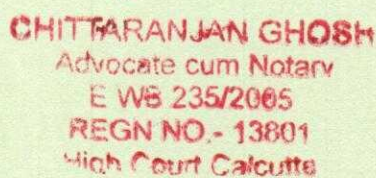 CHITTARANJAN GHOSH
Advocate cum Notary
E WB 235/2005
REGN NO.- 13801
High Court Calcutta